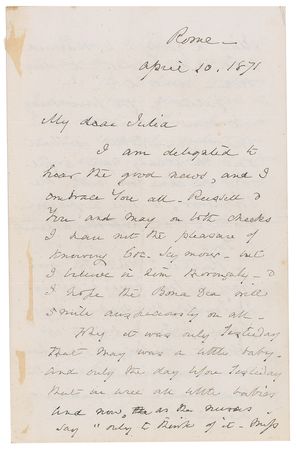 Rome —
April 20. 1871
My dear Julia
I am delighted to
hear the good news, and I
embrace you all. Russell &
You and May on both cheeks
I have not the pleasure of
knowing Seymour — but
I believe in him thoroughly — &
I hope the Bona Dea will
smile auspiciously on all —
Why it was only yesterday
that May was a little baby —
and only the day before yesterday
that we were all little babies
and now, as the nurses
say "only to think of it — Miss